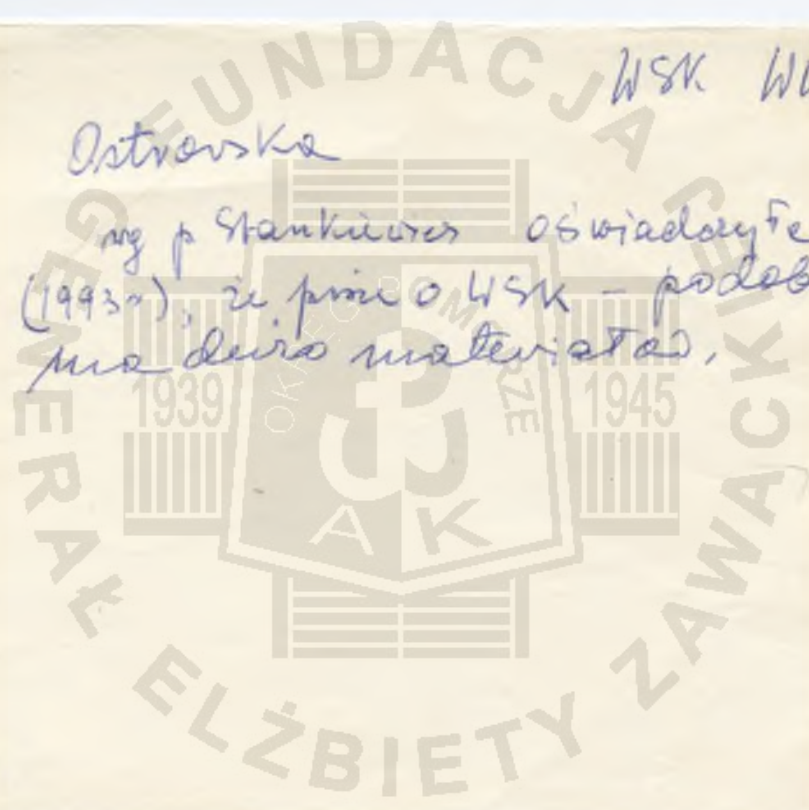 WSK
Ostrowska
wg p Stankiewicz oświadczyła
(1993r), że pisze o WSK – podob
ma dużo materiałów.
FUNDACJA GENERAŁ ELŻBIETY ZAWACKIEJ
OKRĘG POMORZE
1939 1945
A K